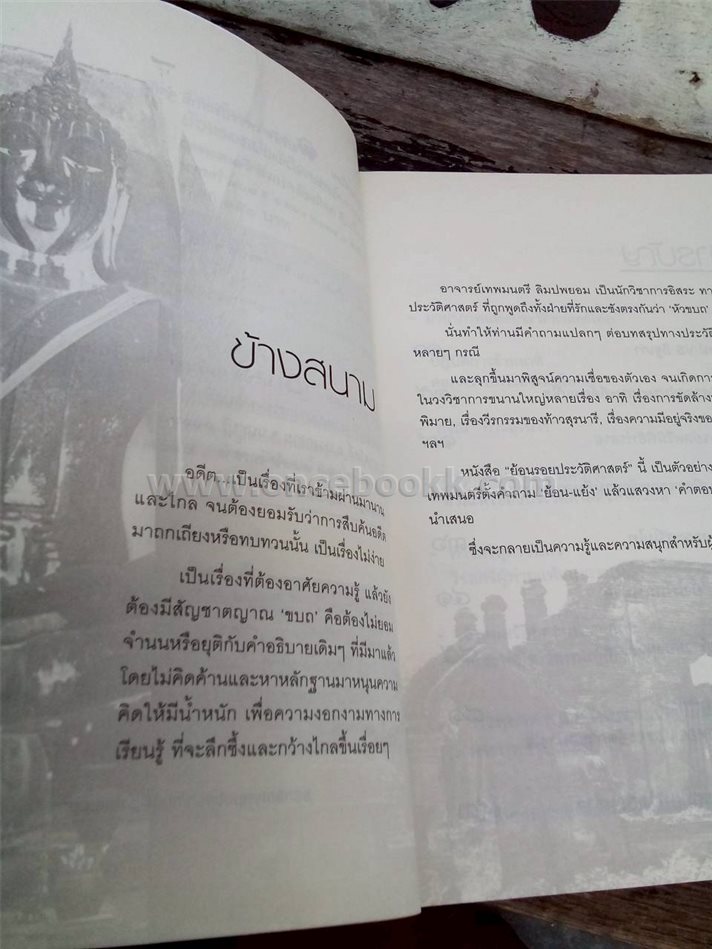 ข้างสนาม
อดีต...เป็นเรื่องที่เราข้ามผ่านมานาน
และไกล จนต้องยอมรับว่าการสืบค้นอดีต
มาถกเถียงหรือทบทวนนั้น เป็นเรื่องไม่ง่าย
เป็นเรื่องที่ต้องอาศัยความรู้ แล้วยัง
ต้องมีสัญชาตญาณ ‘ขบถ’ คือต้องไม่ยอม
จำนนหรือยุติกับคำอธิบายเดิมๆ ที่มีมาแล้ว
โดยไม่คิดค้านและหาหลักฐานมาหนุนความ
คิดให้มีน้ำหนัก เพื่อความงอกงามทางการ
เรียนรู้ ที่จะลึกซึ้งและกว้างไกลขึ้นเรื่อยๆ
อาจารย์เทพมนตรี ลิมปพยอม เป็นนักวิชาการอิสระ ทา
ประวัติศาสตร์ ที่ถูกพูดถึงทั้งฝ่ายที่รักและชังตรงกันว่า ‘หัวขบถ’
นั่นทำให้ท่านมีคำถามแปลกๆ ต่อบทสรุปทางประวัติ
หลายๆ กรณี
และลุกขึ้นมาพิสูจน์ความเชื่อของตัวเอง จนเกิดการ
ในวงวิชาการขนานใหญ่หลายเรื่อง อาทิ เรื่องการขัดล้าง
พิมาย, เรื่องวีรกรรมของท้าวสุรนารี, เรื่องความมีอยู่จริงขอ
ฯลฯ
หนังสือ “ย้อนรอยประวัติศาสตร์” นี้ เป็นตัวอย่าง
เทพมนตรีตั้งคำถาม ‘ย้อน-แย้ง’ แล้วแสวงหา ‘คำตอ
นำเสนอ
ซึ่งจะกลายเป็นความรู้และความสนุกสำหรับผู้